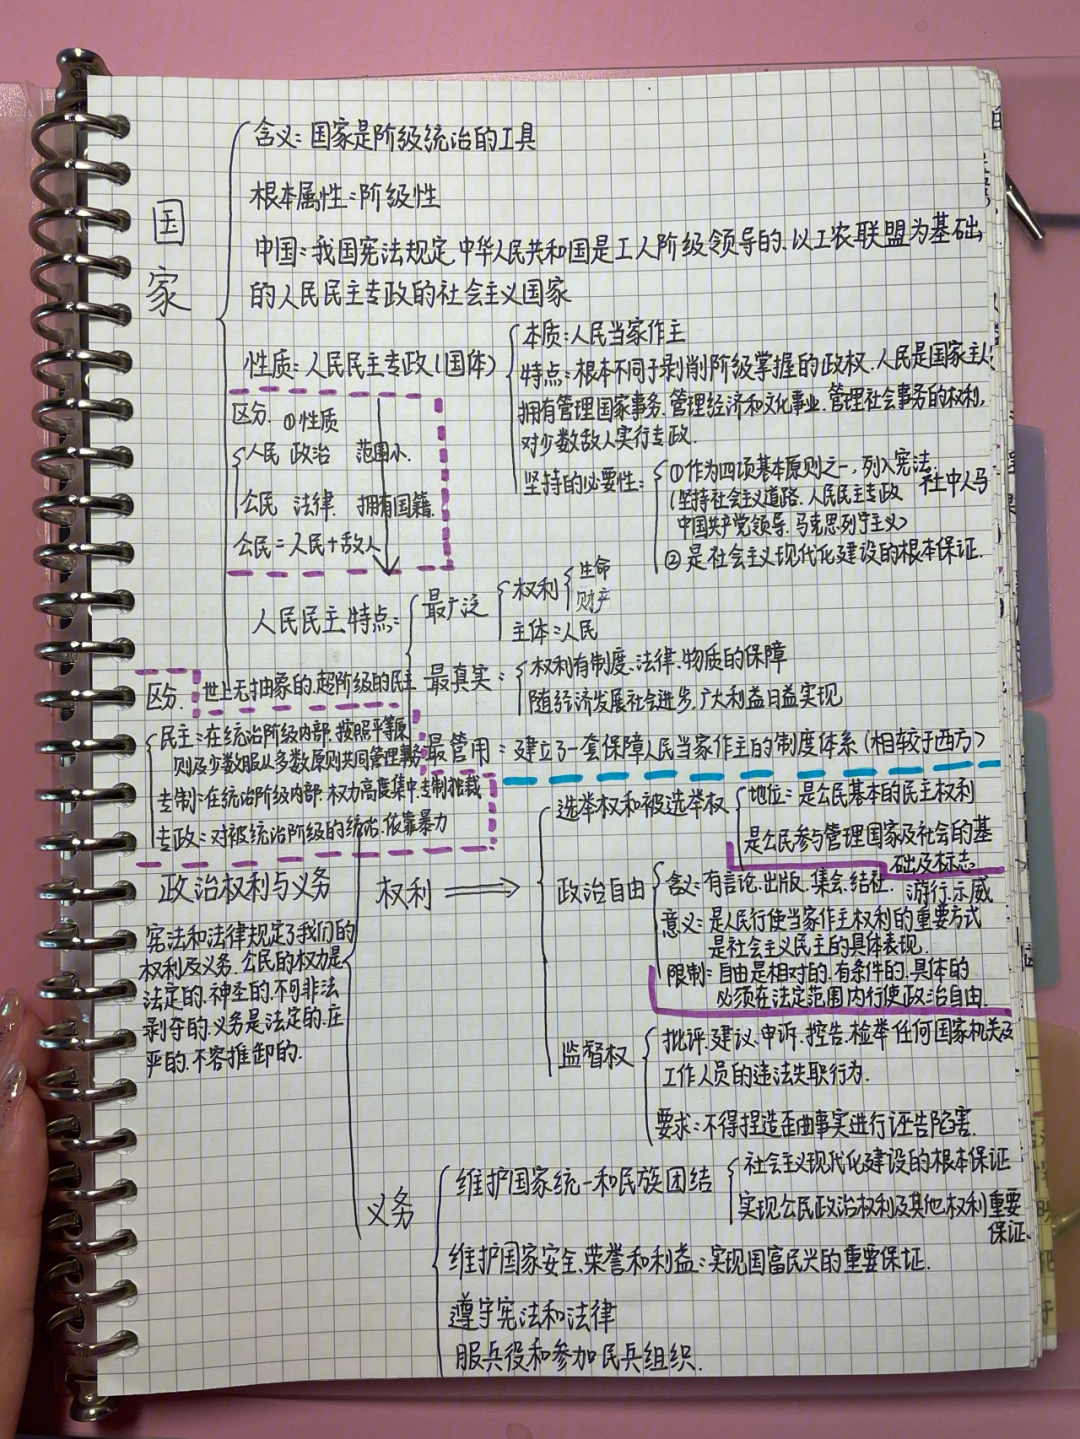 国家
含义：国家是阶级统治的工具
根本属性：阶级性
中国：我国宪法规定,中华人民共和国是工人阶级领导的.以工农联盟为基础
的人民民主专政的社会主义国家
性质：人民民主专政(国体)
本质：人民当家作主
特点：根本不同于剥削阶级掌握的政权.人民是国家主人
拥有管理国家事务.管理经济和文化事业.管理社会事务的权利,
对少数敌人实行专政.
坚持的必要性：
①作为四项基本原则之一,列入宪法.
(坚持社会主义道路.人民民主专政
中国共产党领导.马克思列宁主义)
社中人马
②是社会主义现代化建设的根本保证.
区分.①性质
人民 政治 范围小.
公民 法律 拥有国籍.
公民=人民+敌人
人民民主特点：
最广泛
权利
生命
财产
主体：人民
最真实：
权利有制度.法律.物质的保障
随经济发展社会进步,广大利益日益实现
最管用：建立了一套保障人民当家作主的制度体系(相较于西方)
区分.
世上无抽象的.超阶级的民主
民主：在统治阶级内部.按照平等原
则及少数服从多数原则共同管理事务
专制：在统治阶级内部.权力高度集中.专制独裁
专政：对被统治阶级的统治.依靠暴力
政治权利与义务
宪法和法律规定了我们的
权利及义务.公民的权力是
法定的.神圣的.不可非法
剥夺的.义务是法定的.庄
严的.不容推卸的.
权利
选举权和被选举权
地位：是公民基本的民主权利
是公民参与管理国家及社会的基
础及标志.
政治自由
含义：有言论.出版.集会.结社.
游行.示威
意义：是人民行使当家作主权利的重要方式
是社会主义民主的具体表现.
限制：自由是相对的.有条件的.具体的
必须在法定范围内行使政治自由.
监督权
批评.建议.申诉.控告.检举任何国家机关及
工作人员的违法失职行为.
要求：不得捏造歪曲事实进行诬告陷害.
义务
维护国家统一和民族团结
社会主义现代化建设的根本保证
实现公民政治权利及其他权利重要
保证.
维护国家安全.荣誉和利益：实现国富民兴的重要保证.
遵守宪法和法律
服兵役和参加民兵组织.